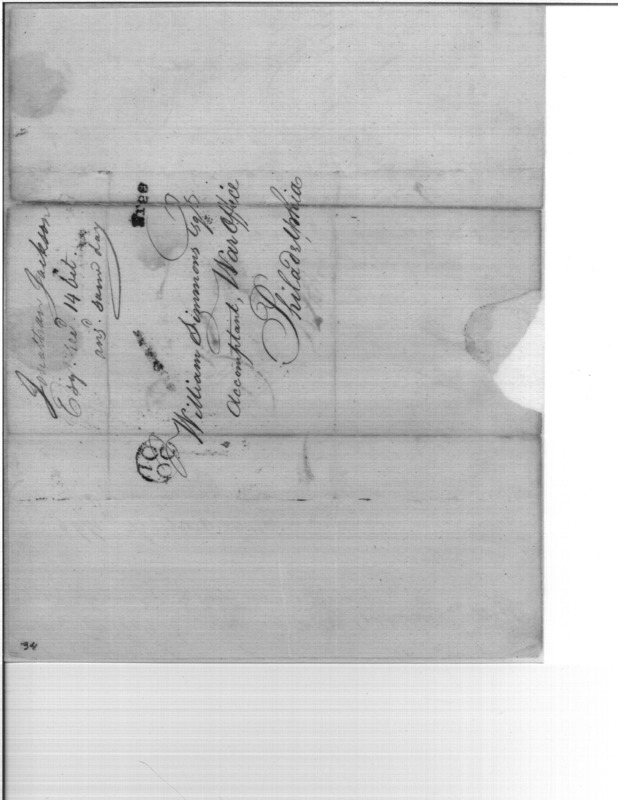 Jonathan Jackson
Esqr. recd. 14 Oct.
ans. same day
Free
10
OC
William Simmons Esqr.
Accomptant, War Office
Philadelphia
34